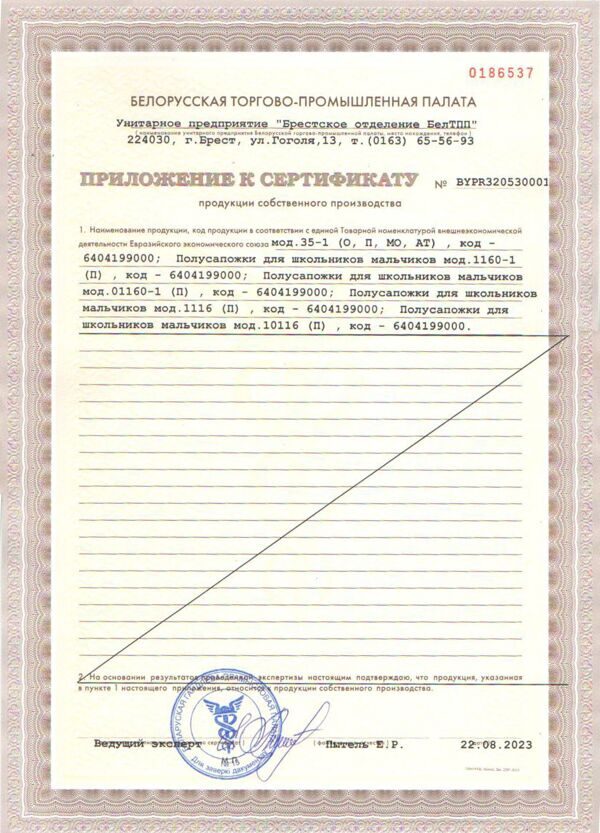 0186537
БЕЛОРУССКАЯ ТОРГОВО-ПРОМЫШЛЕННАЯ ПАЛАТА
Унитарное предприятие "Брестское отделение БелТПП"
(наименование унитарного предприятия Белорусской торгово-промышленной палаты, место нахождения, телефон)
224030, г.Брест, ул.Гоголя,13, т.(0163) 65-56-93
ПРИЛОЖЕНИЕ К СЕРТИФИКАТУ № BYPR320530001
продукции собственного производства
1. Наименование продукции, код продукции в соответствии с единой Товарной номенклатурой внешнеэкономической
деятельности Евразийского экономического союза мод.35-1 (О, П, МО, АТ) , код -
6404199000; Полусапожки для школьников мальчиков мод.1160-1
(П) , код - 6404199000; Полусапожки для школьников мальчиков
мод.01160-1 (П) , код - 6404199000; Полусапожки для школьников
мальчиков мод.1116 (П) , код - 6404199000; Полусапожки для
школьников мальчиков мод.10116 (П) , код - 6404199000.
2. На основании результатов проведенной экспертизы настоящим подтверждаю, что продукция, указанная
в пункте 1 настоящего приложения, относится к продукции собственного производства.
Ведущий эксперт Пытель Е.Р. 22.08.2023
М.П.
Для заверкі дакументаў